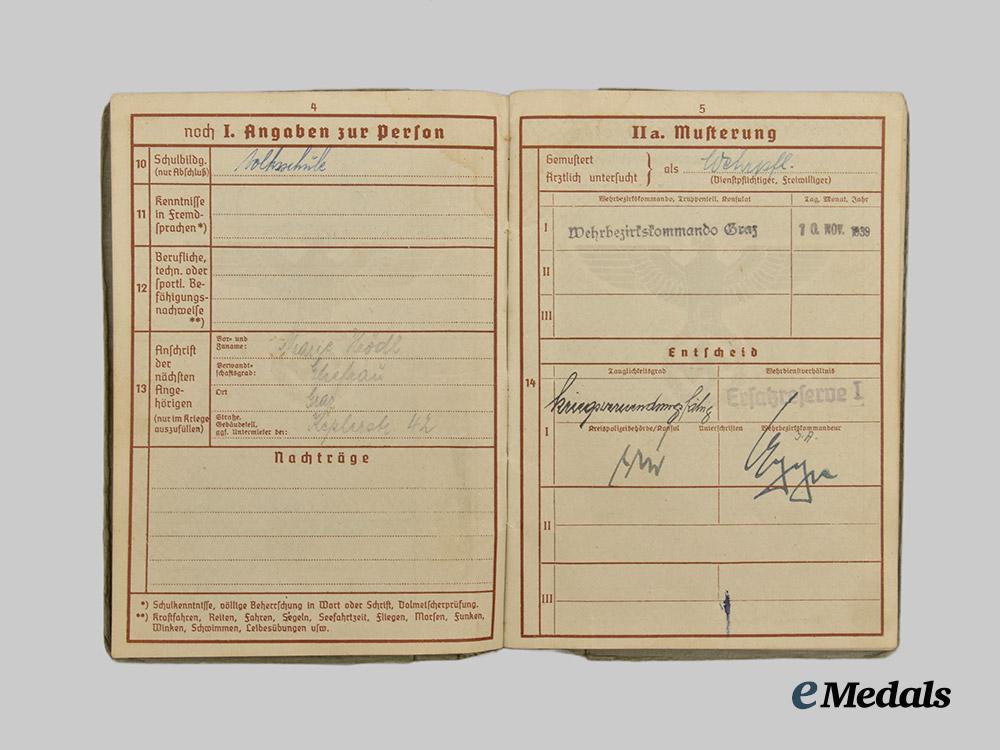 4
noch I. Angaben zur Person
10 Schulbildg. (nur Abschluß) Volksschule
11 Kenntnisse in Fremd-
sprachen*)
12 Berufliche,
techn. oder
sportl. Be-
fähigungs-
nachweise
**)
13 Anschrift
der
nächsten
Ange-
hörigen
(nur im Kriege
auszufüllen)
Vor- und
Zuname: Marie Ködl
Verwandt-
schaftsgrad: Ehefrau
Ort Graz
Straße,
Gebäudeteil,
ggf. Untermieter bei: Keplerstr. 42
Nachträge
*) Schulkenntnisse, völlige Beherrschung in Wort oder Schrift, Dolmetscherprüfung.
**) Kraftfahren, Reiten, Fahren, Segeln, Seefahrtzeit, Fliegen, Morsen, Funken,
Winken, Schwimmen, Leibesübungen usw.
5
IIa. Musterung
Gemustert
Ärztlich untersucht } als Wehrpfl.
(Dienstpflichtiger, Freiwilliger)
Wehrbezirkskommando, Truppenteil, Konsulat Tag, Monat, Jahr
I Wehrbezirkskommando Graz 10. NOV. 1939
II
III
Entscheid
14
Tauglichkeitsgrad Wehrdienstverhältnis
kriegsverwendungsfähig Ersatzreserve I
I Kreispolizeibehörde/Konsul Unterschriften Wehrbezirkskommandeur
II
III
eMedals